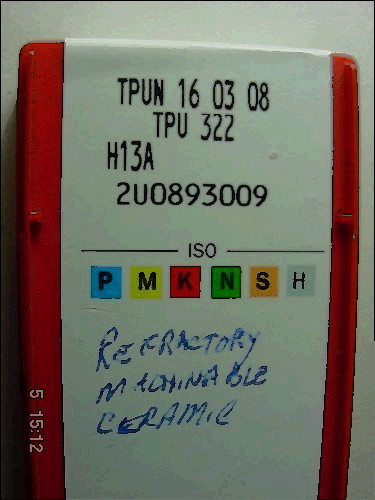 TPUN 16 03 08
TPU 322
H13A
2U0893009
ISO
P M K N S H
REFRACTORY
MACHINABLE
CERAMIC
5 15:12